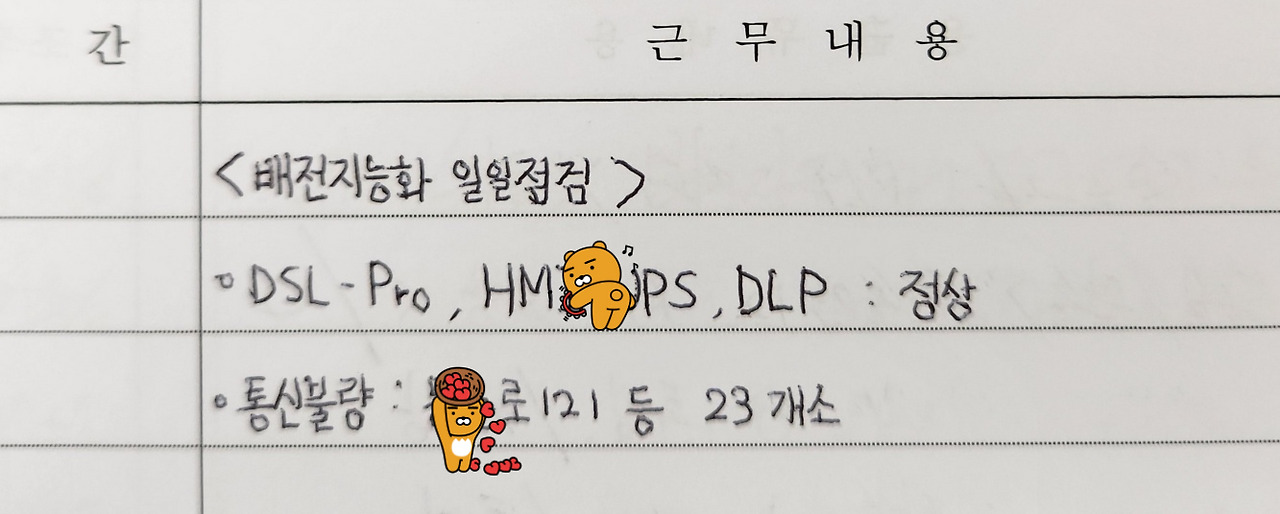 간 근 무 내 용
< 배전지능화 일일점검 >
◦ DSL-Pro, DLP : 정상
◦ 통신불량 : 등 23개소